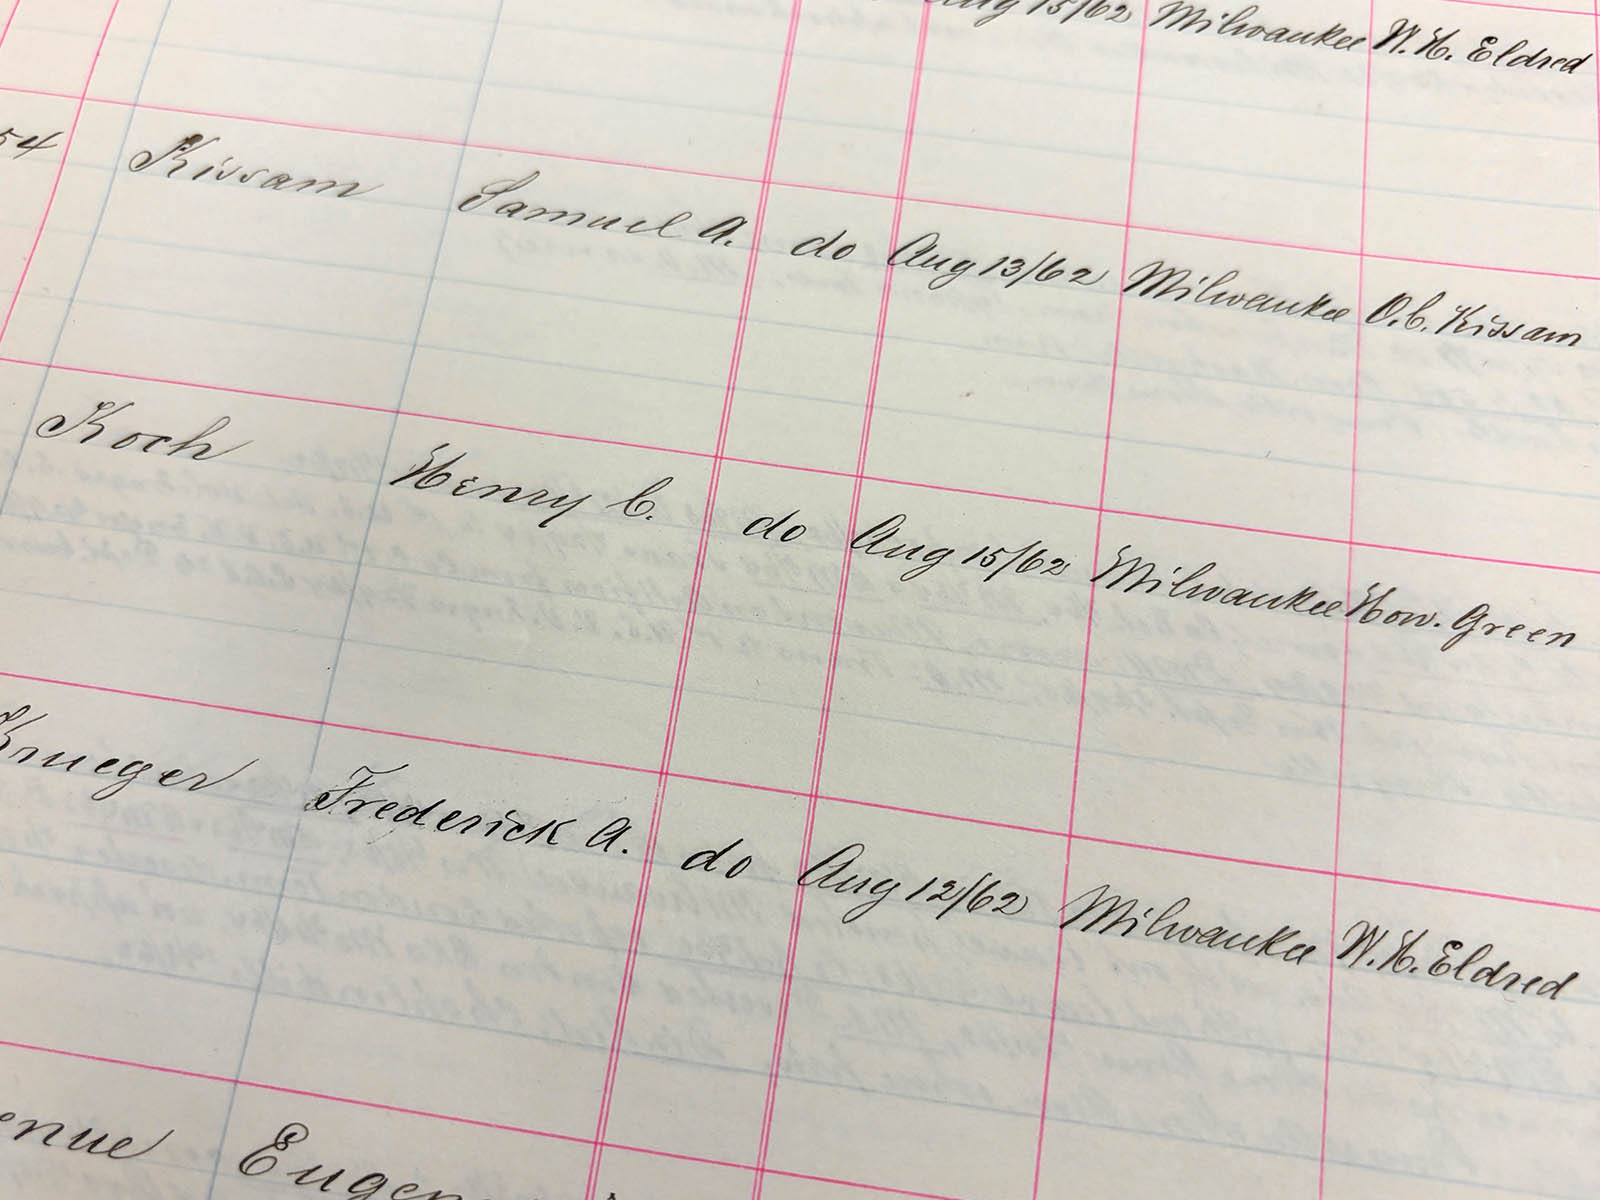 Aug 15/62 Milwaukee W. H. Eldred
54 Kissam Samuel A. do Aug 13/62 Milwaukee O. C. Kissam
Koch Henry C. do Aug 15/62 Milwaukee How. Green
Krueger Frederick A. do Aug 12/62 Milwaukee W. H. Eldred
enue Eugen